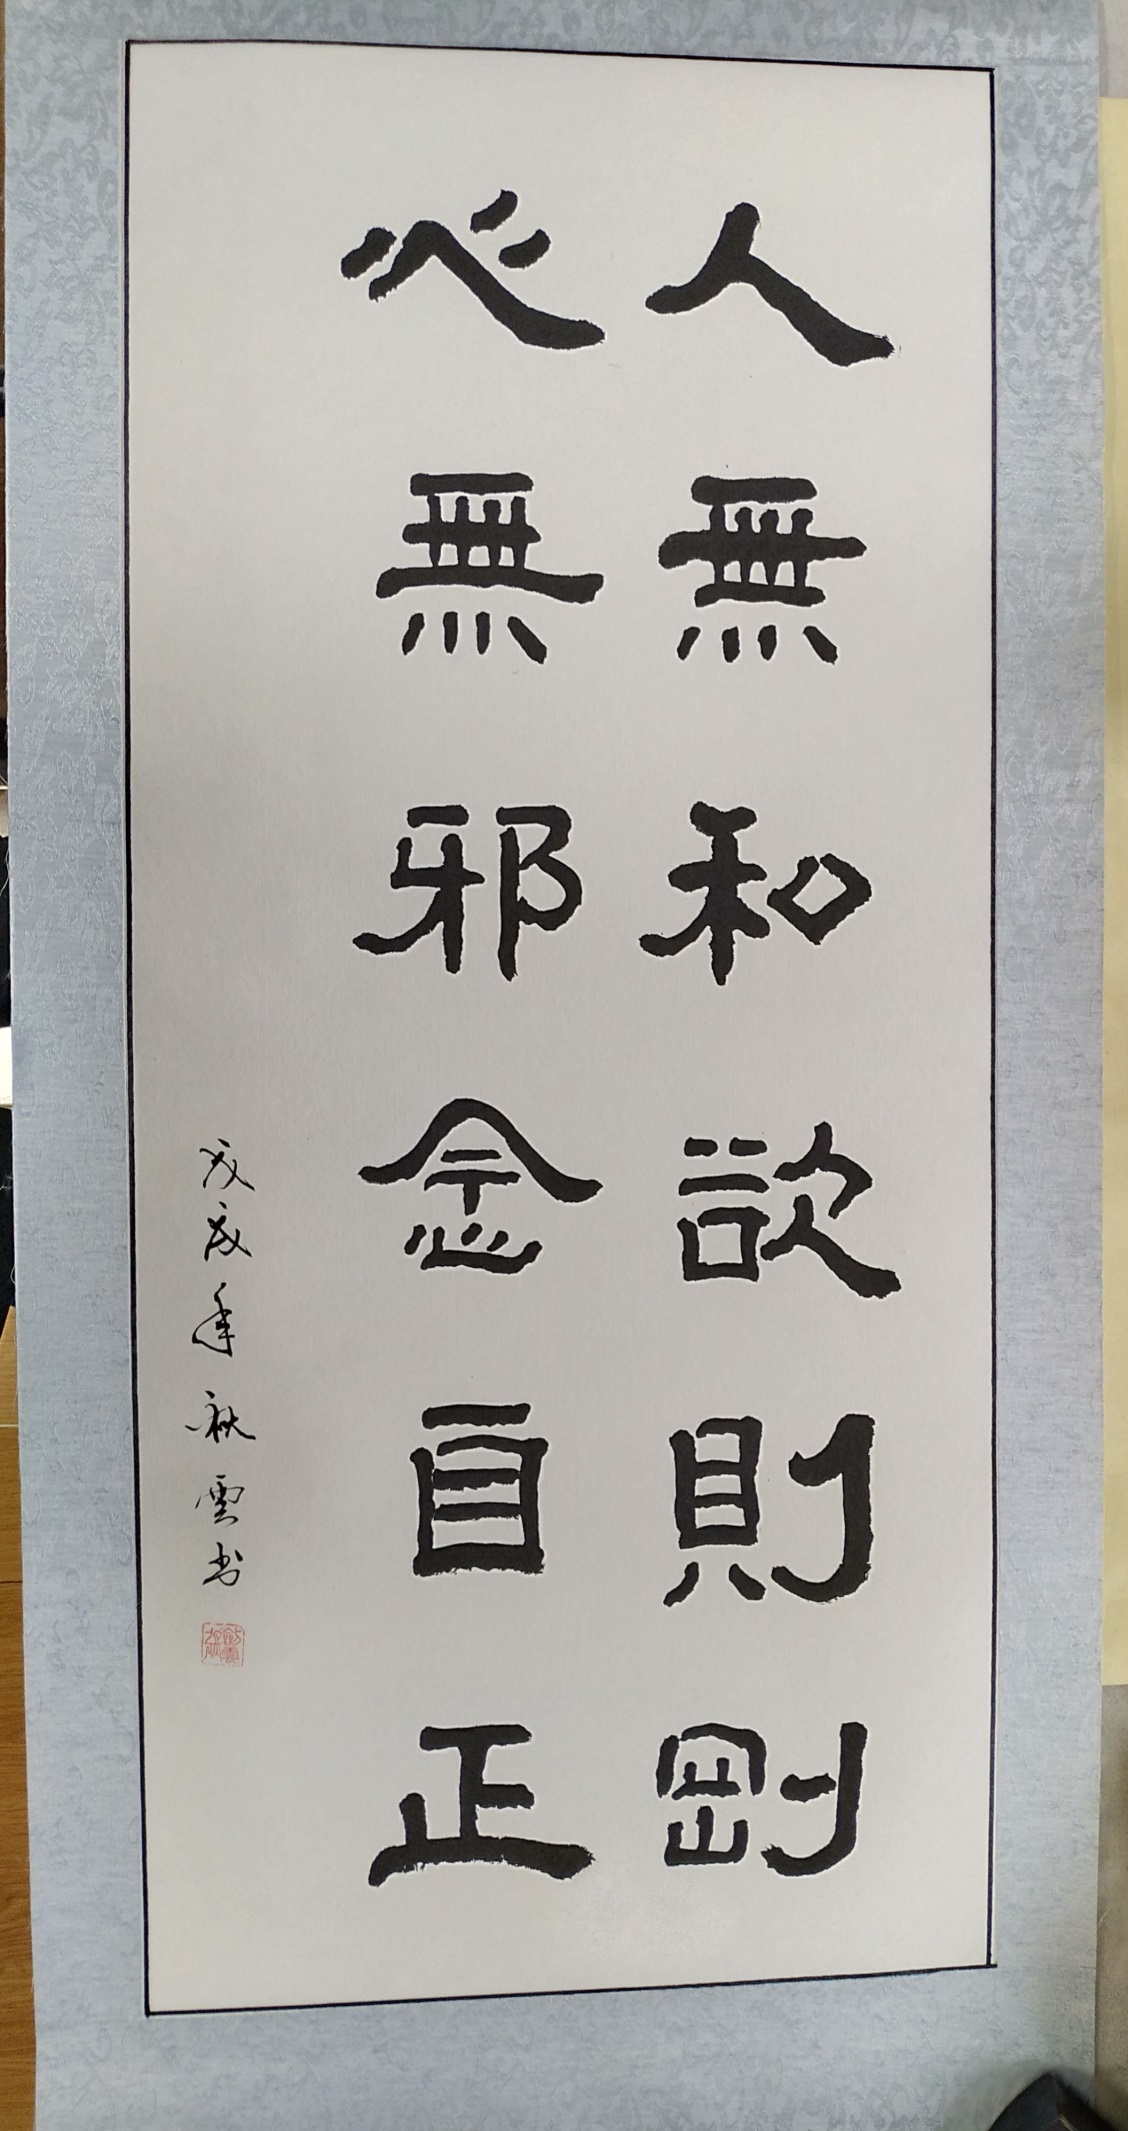 人無和欲則剛
心無邪念自正
戊戌年秋雲书